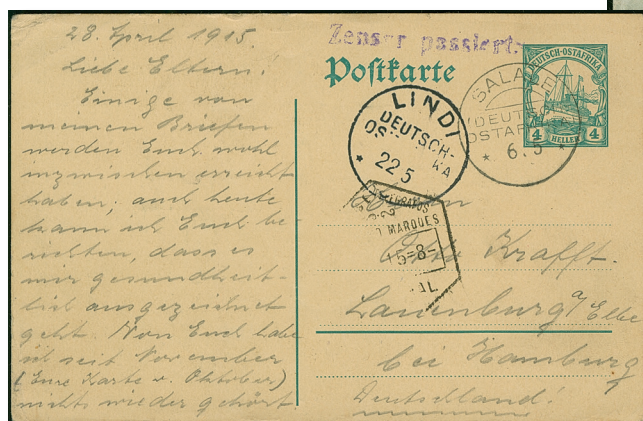 28. April 1915.
Liebe Eltern!
Einige von
meinen Briefen
werden Euch wohl
inzwischen erreicht
haben; auch heute
kann ich Euch be-
richten, dass es
mir gesundheit-
lich ausgezeichnet
geht. Von Euch habe
ich seit November
(Eure Karte v. Oktober)
nichts wieder gehört
Zensor passiert.
Postkarte
DEUTSCH-OSTAFRIKA
4 HELLER 4
SALALE
DEUTSCH
OSTAFRIKA
* 6.5 *
LINDI
DEUTSCH-
OS KA
* 22 5
MARQUES
15-8-
Krafft.
Lauenburg a/Elbe
bei Hamburg
Deutschland!